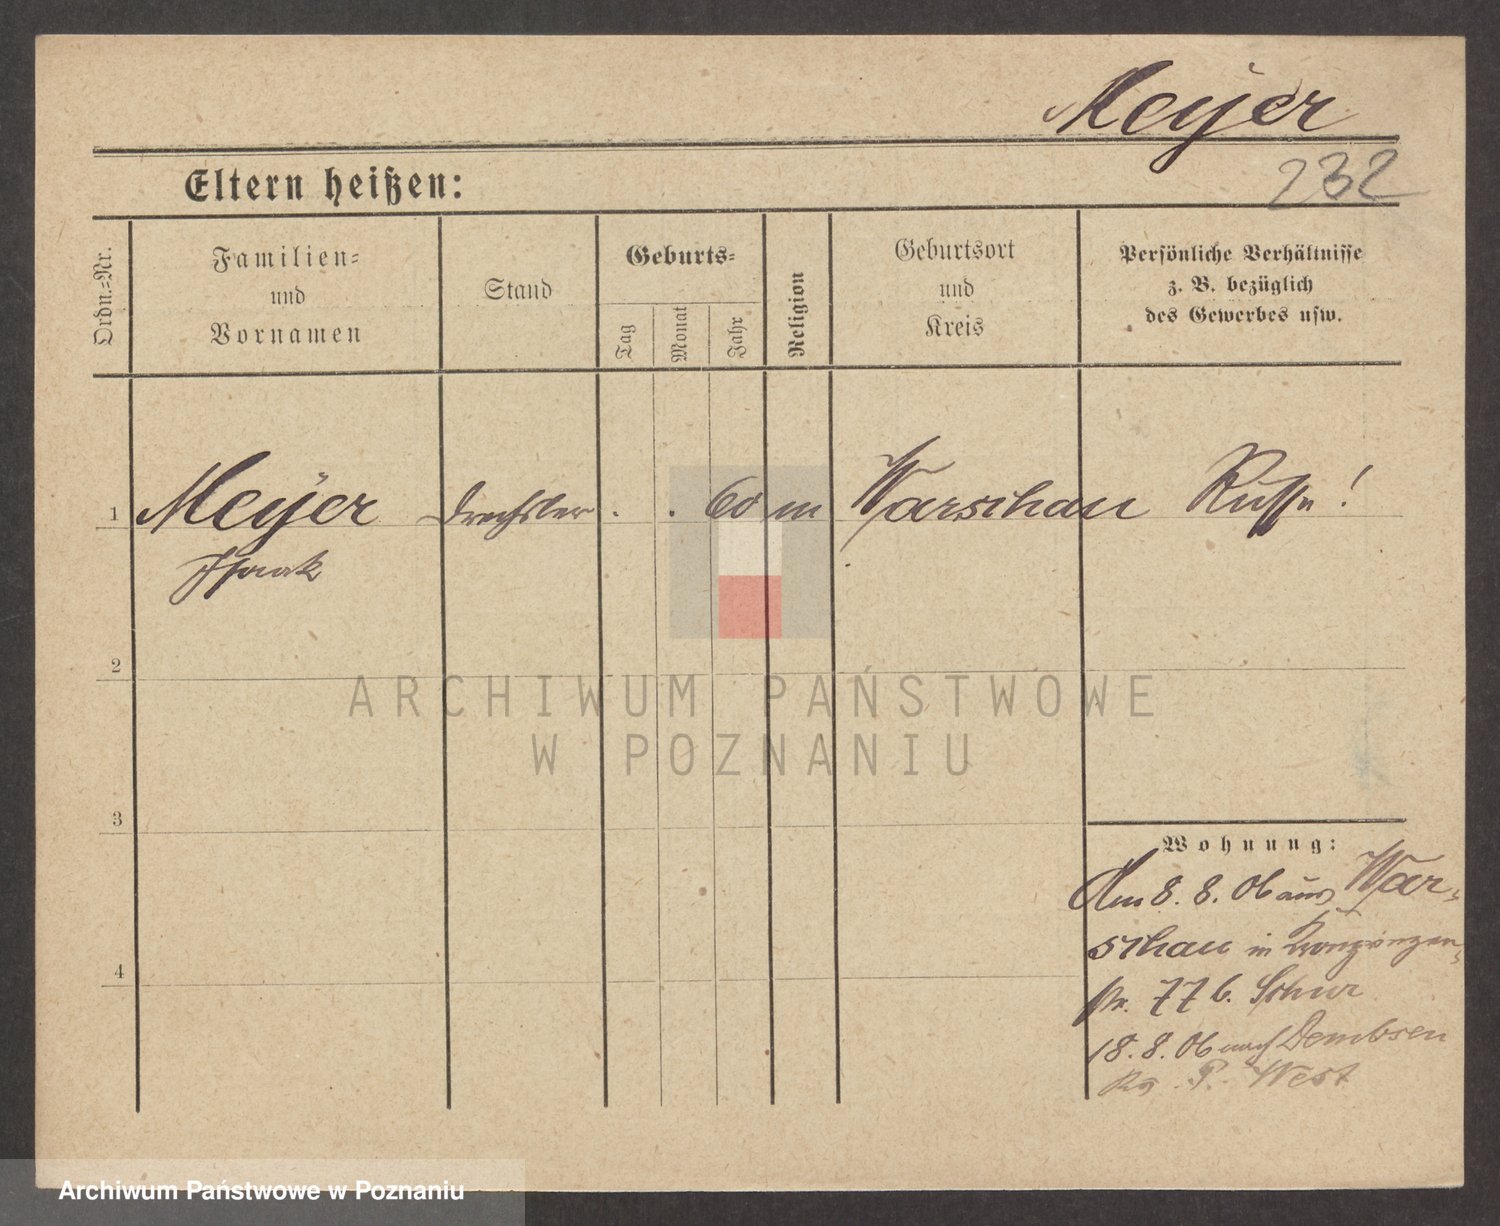 Meyer
232
Eltern heißen:
Ordn.-Nr.
Familien-
und
Vornamen
Stand
Geburts-
Tag
Monat
Jahr
Religion
Geburtsort
und
Kreis
Persönliche Verhältnisse
z. B. bezüglich
des Gewerbes usw.
1 Meyer Drechsler . . 60 m Warschau Russe!
Isaak
2
3
4
ARCHIWUM PAŃSTWOWE
W POZNANIU
Wohnung:
Am 8. 8. 06 aus War-
schau in Kronprinzen-
str. 77 b. Schur
18. 8. 06 nach Dembsen
P. West
Archiwum Państwowe w Poznaniu